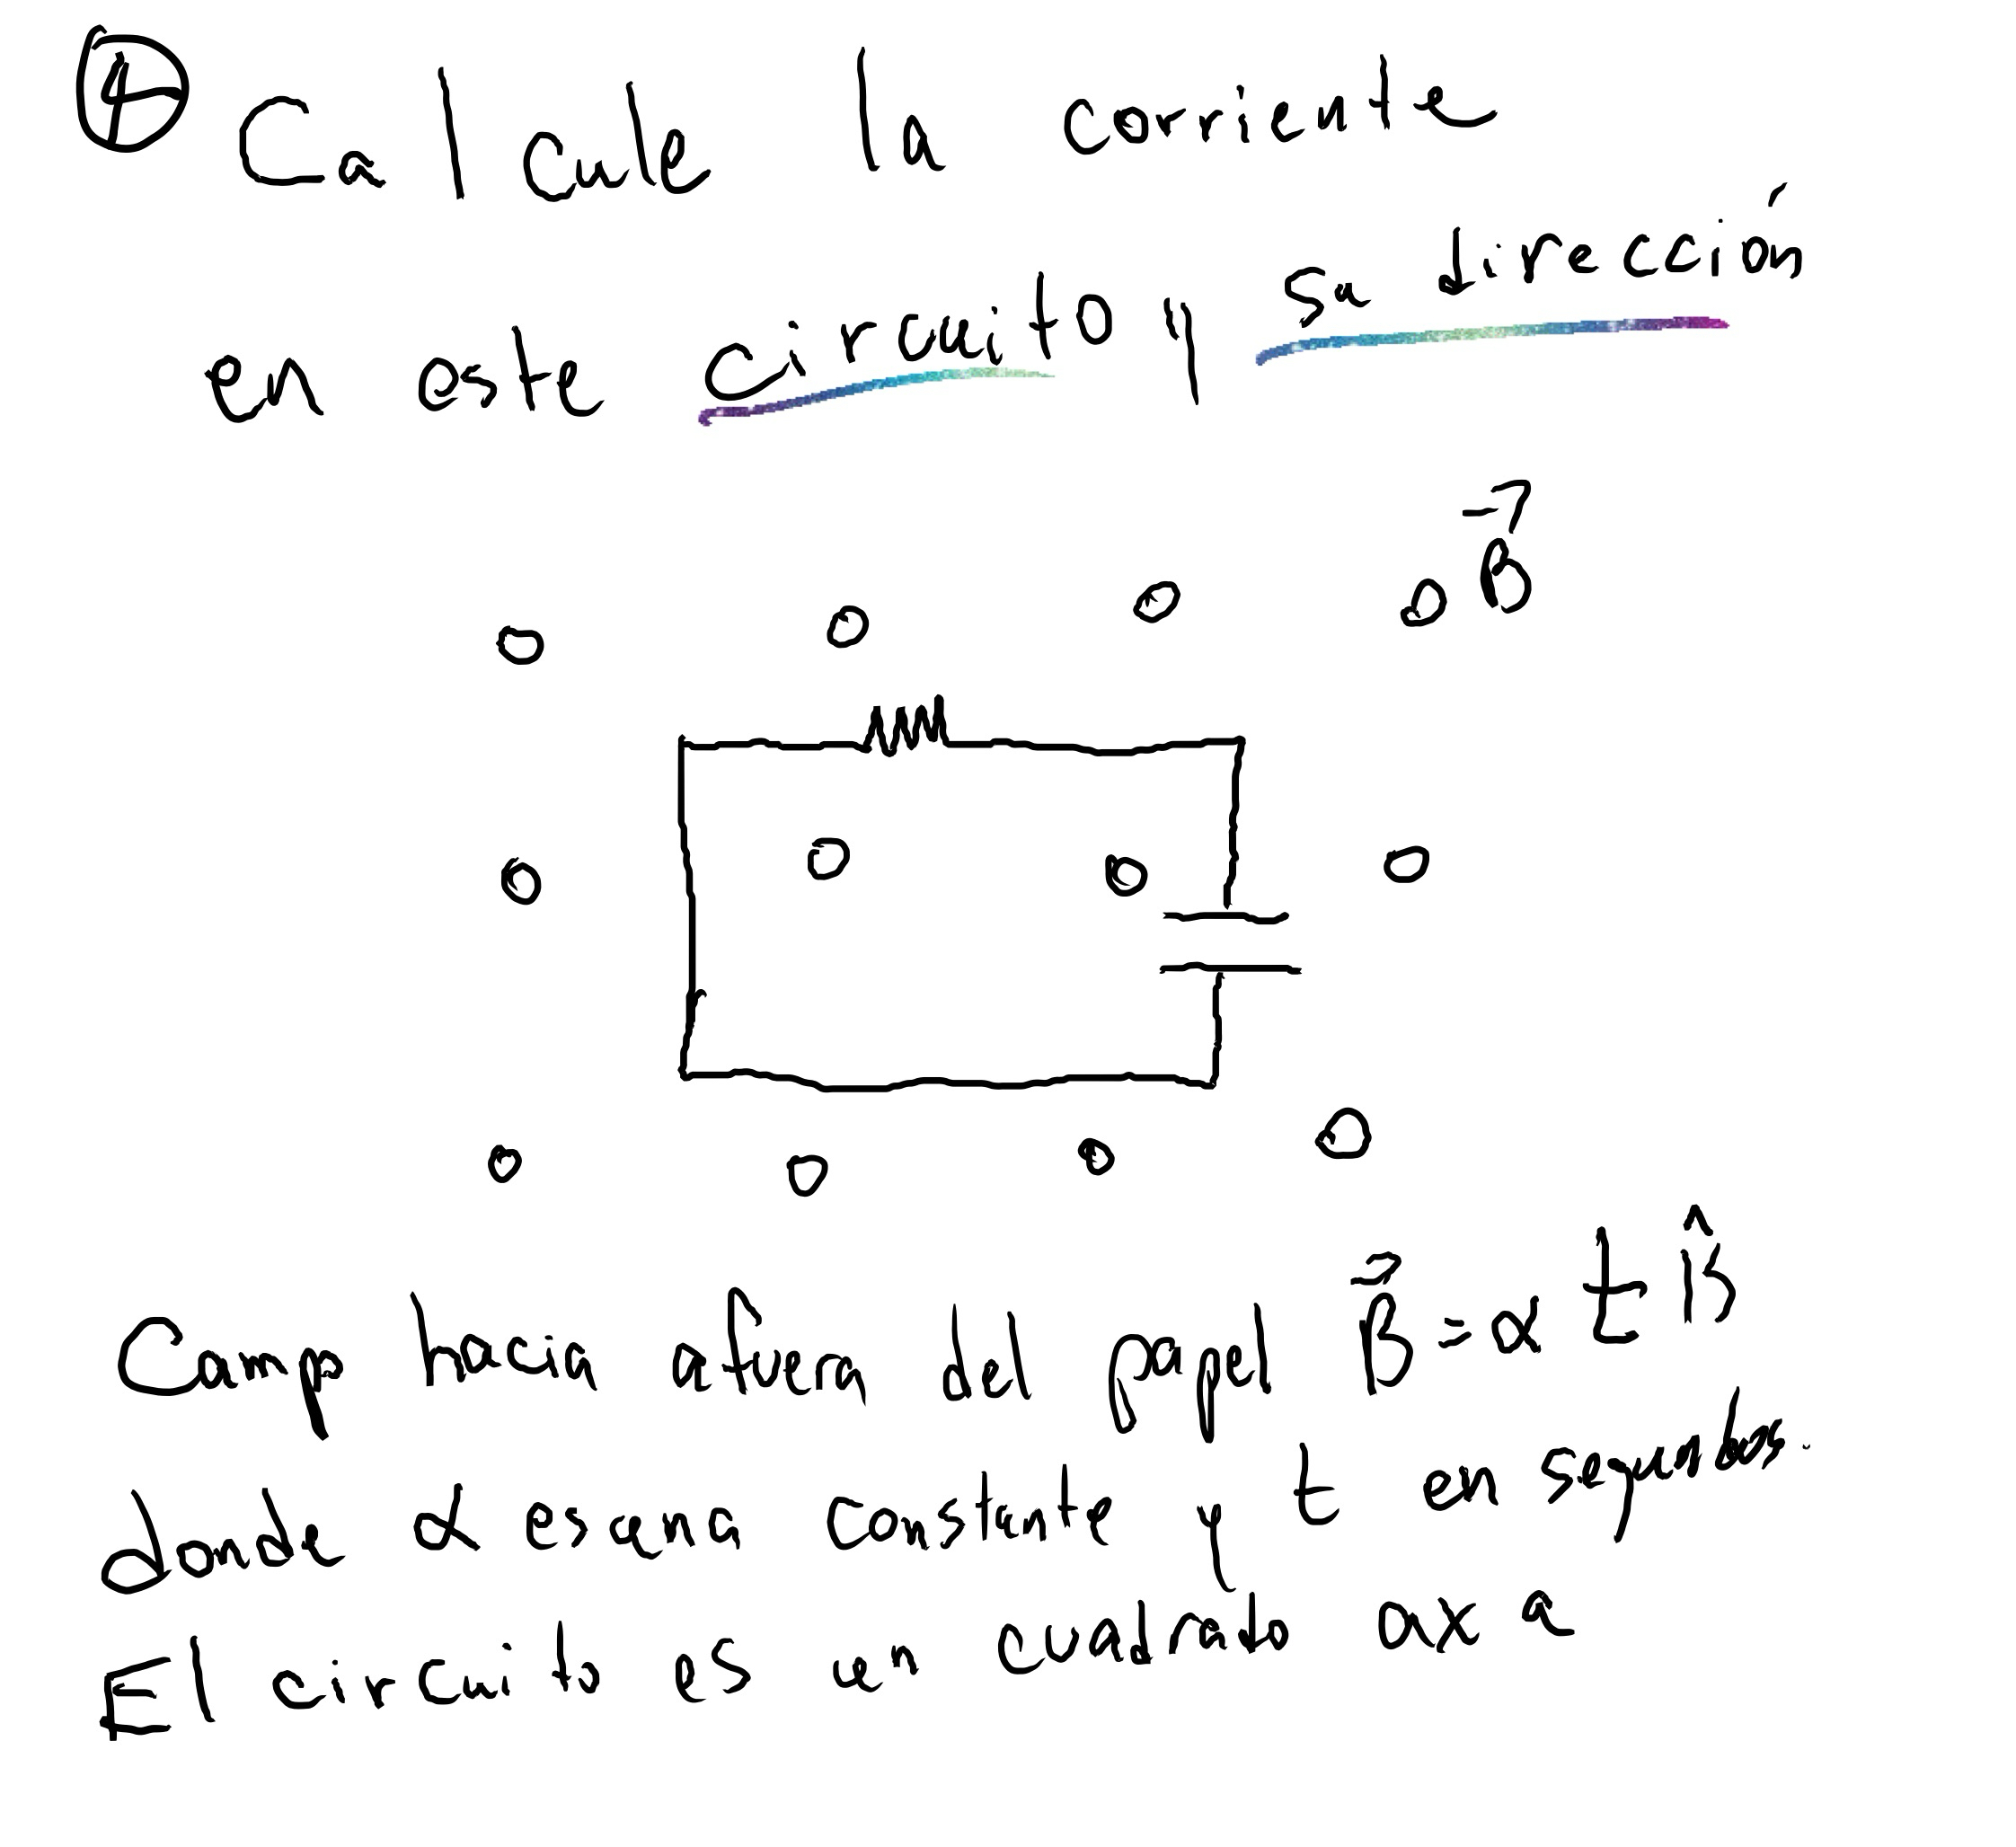 ④ Calcule la corriente
en este circuito y su dirección
B⃗
Campo hacia afuera del papel B⃗ = α t k̂
donde α es una constante y t en segundos.
El circuito es un cuadrado a x a